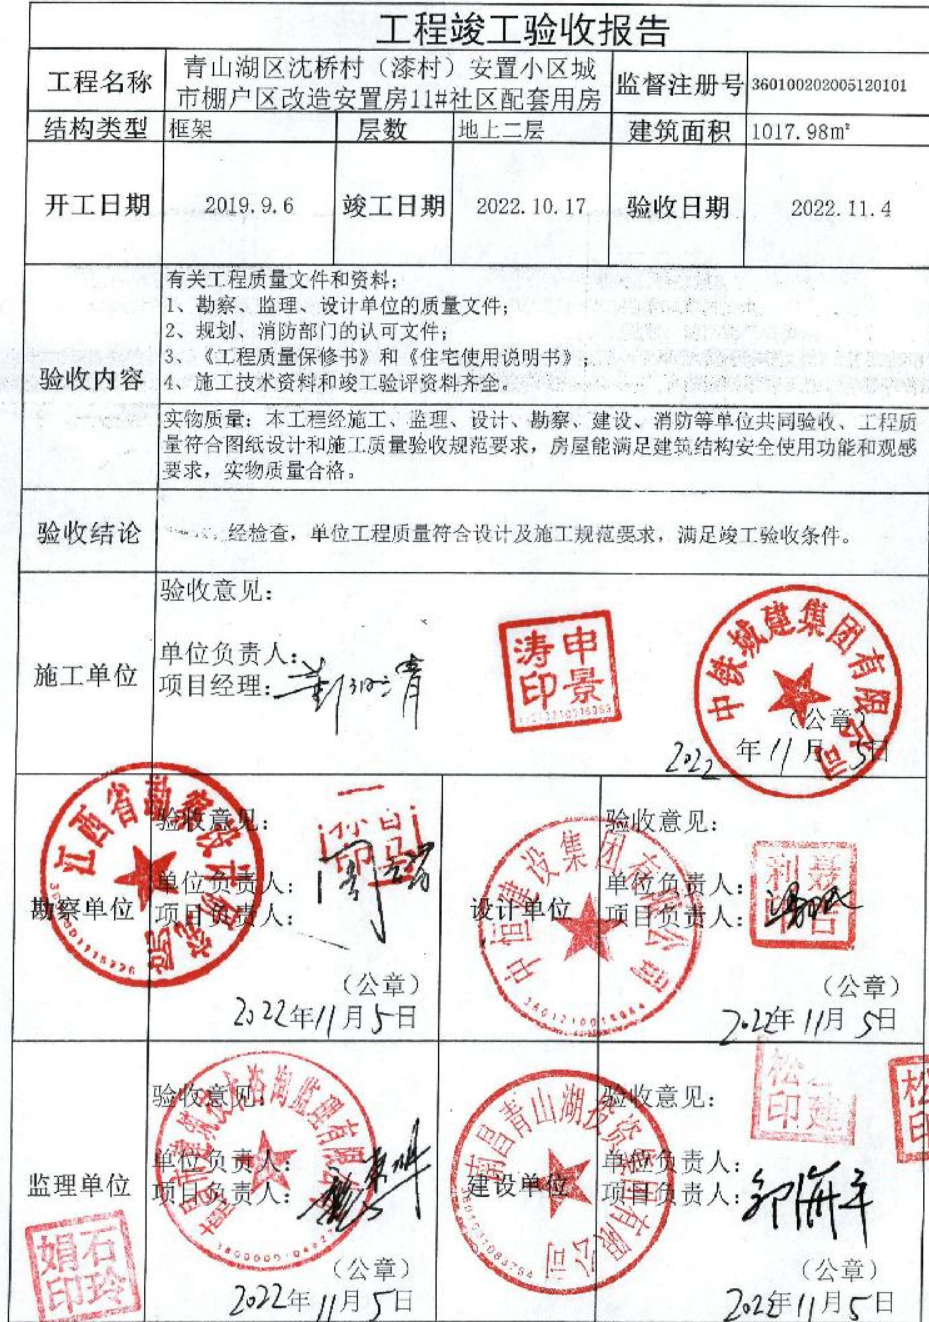 工程竣工验收报告
工程名称
青山湖区沈桥村（漆村）安置小区城
市棚户区改造安置房11#社区配套用房
监督注册号
360100202005120101
结构类型
框架
层数
地上二层
建筑面积
1017.98m²
开工日期
2019.9.6
竣工日期
2022.10.17
验收日期
2022.11.4
验收内容
有关工程质量文件和资料；
1、勘察、监理、设计单位的质量文件；
2、规划、消防部门的认可文件；
3、《工程质量保修书》和《住宅使用说明书》；
4、施工技术资料和竣工验评资料齐全。
实物质量：本工程经施工、监理、设计、勘察、建设、消防等单位共同验收、工程质
量符合图纸设计和施工质量验收规范要求，房屋能满足建筑结构安全使用功能和观感
要求，实物质量合格。
验收结论
经检查，单位工程质量符合设计及施工规范要求，满足竣工验收条件。
施工单位
验收意见：
单位负责人：
项目经理：
申景涛印
中铁城建集团有限公司
（公章）
2022年11月5日
勘察单位
江西省勘察设计研究院
验收意见：
单位负责人：
项目负责人：
（公章）
2022年11月5日
设计单位
中恒建设集团有限公司
验收意见：
单位负责人：
项目负责人：
（公章）
2022年11月5日
监理单位
验收意见：
单位负责人：
项目负责人：
石玲娟印
（公章）
2022年11月5日
建设单位
南昌青山湖投资集团有限公司
验收意见：
单位负责人：
项目负责人：
（公章）
2022年11月5日